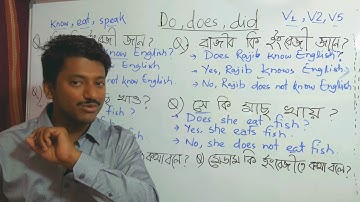 know, eat, speak
Do, does, did
V1, V2, V5
ইংরেজী জানে?
know English?
Q) রাজীব কি ইংরেজী জানে?
→ Does Rajib know English?
→ Yes, Rajib knows English.
→ No, Rajib does not know English
খাও?
fish?
Q) সে কি মাছ খায়?
→ Does she eat fish?
→ Yes, she eats fish.
→ No, she does not eat fish.
কথা বলে?
Q) ম্যাডাম কি ইংরেজীতে কথা বলে?